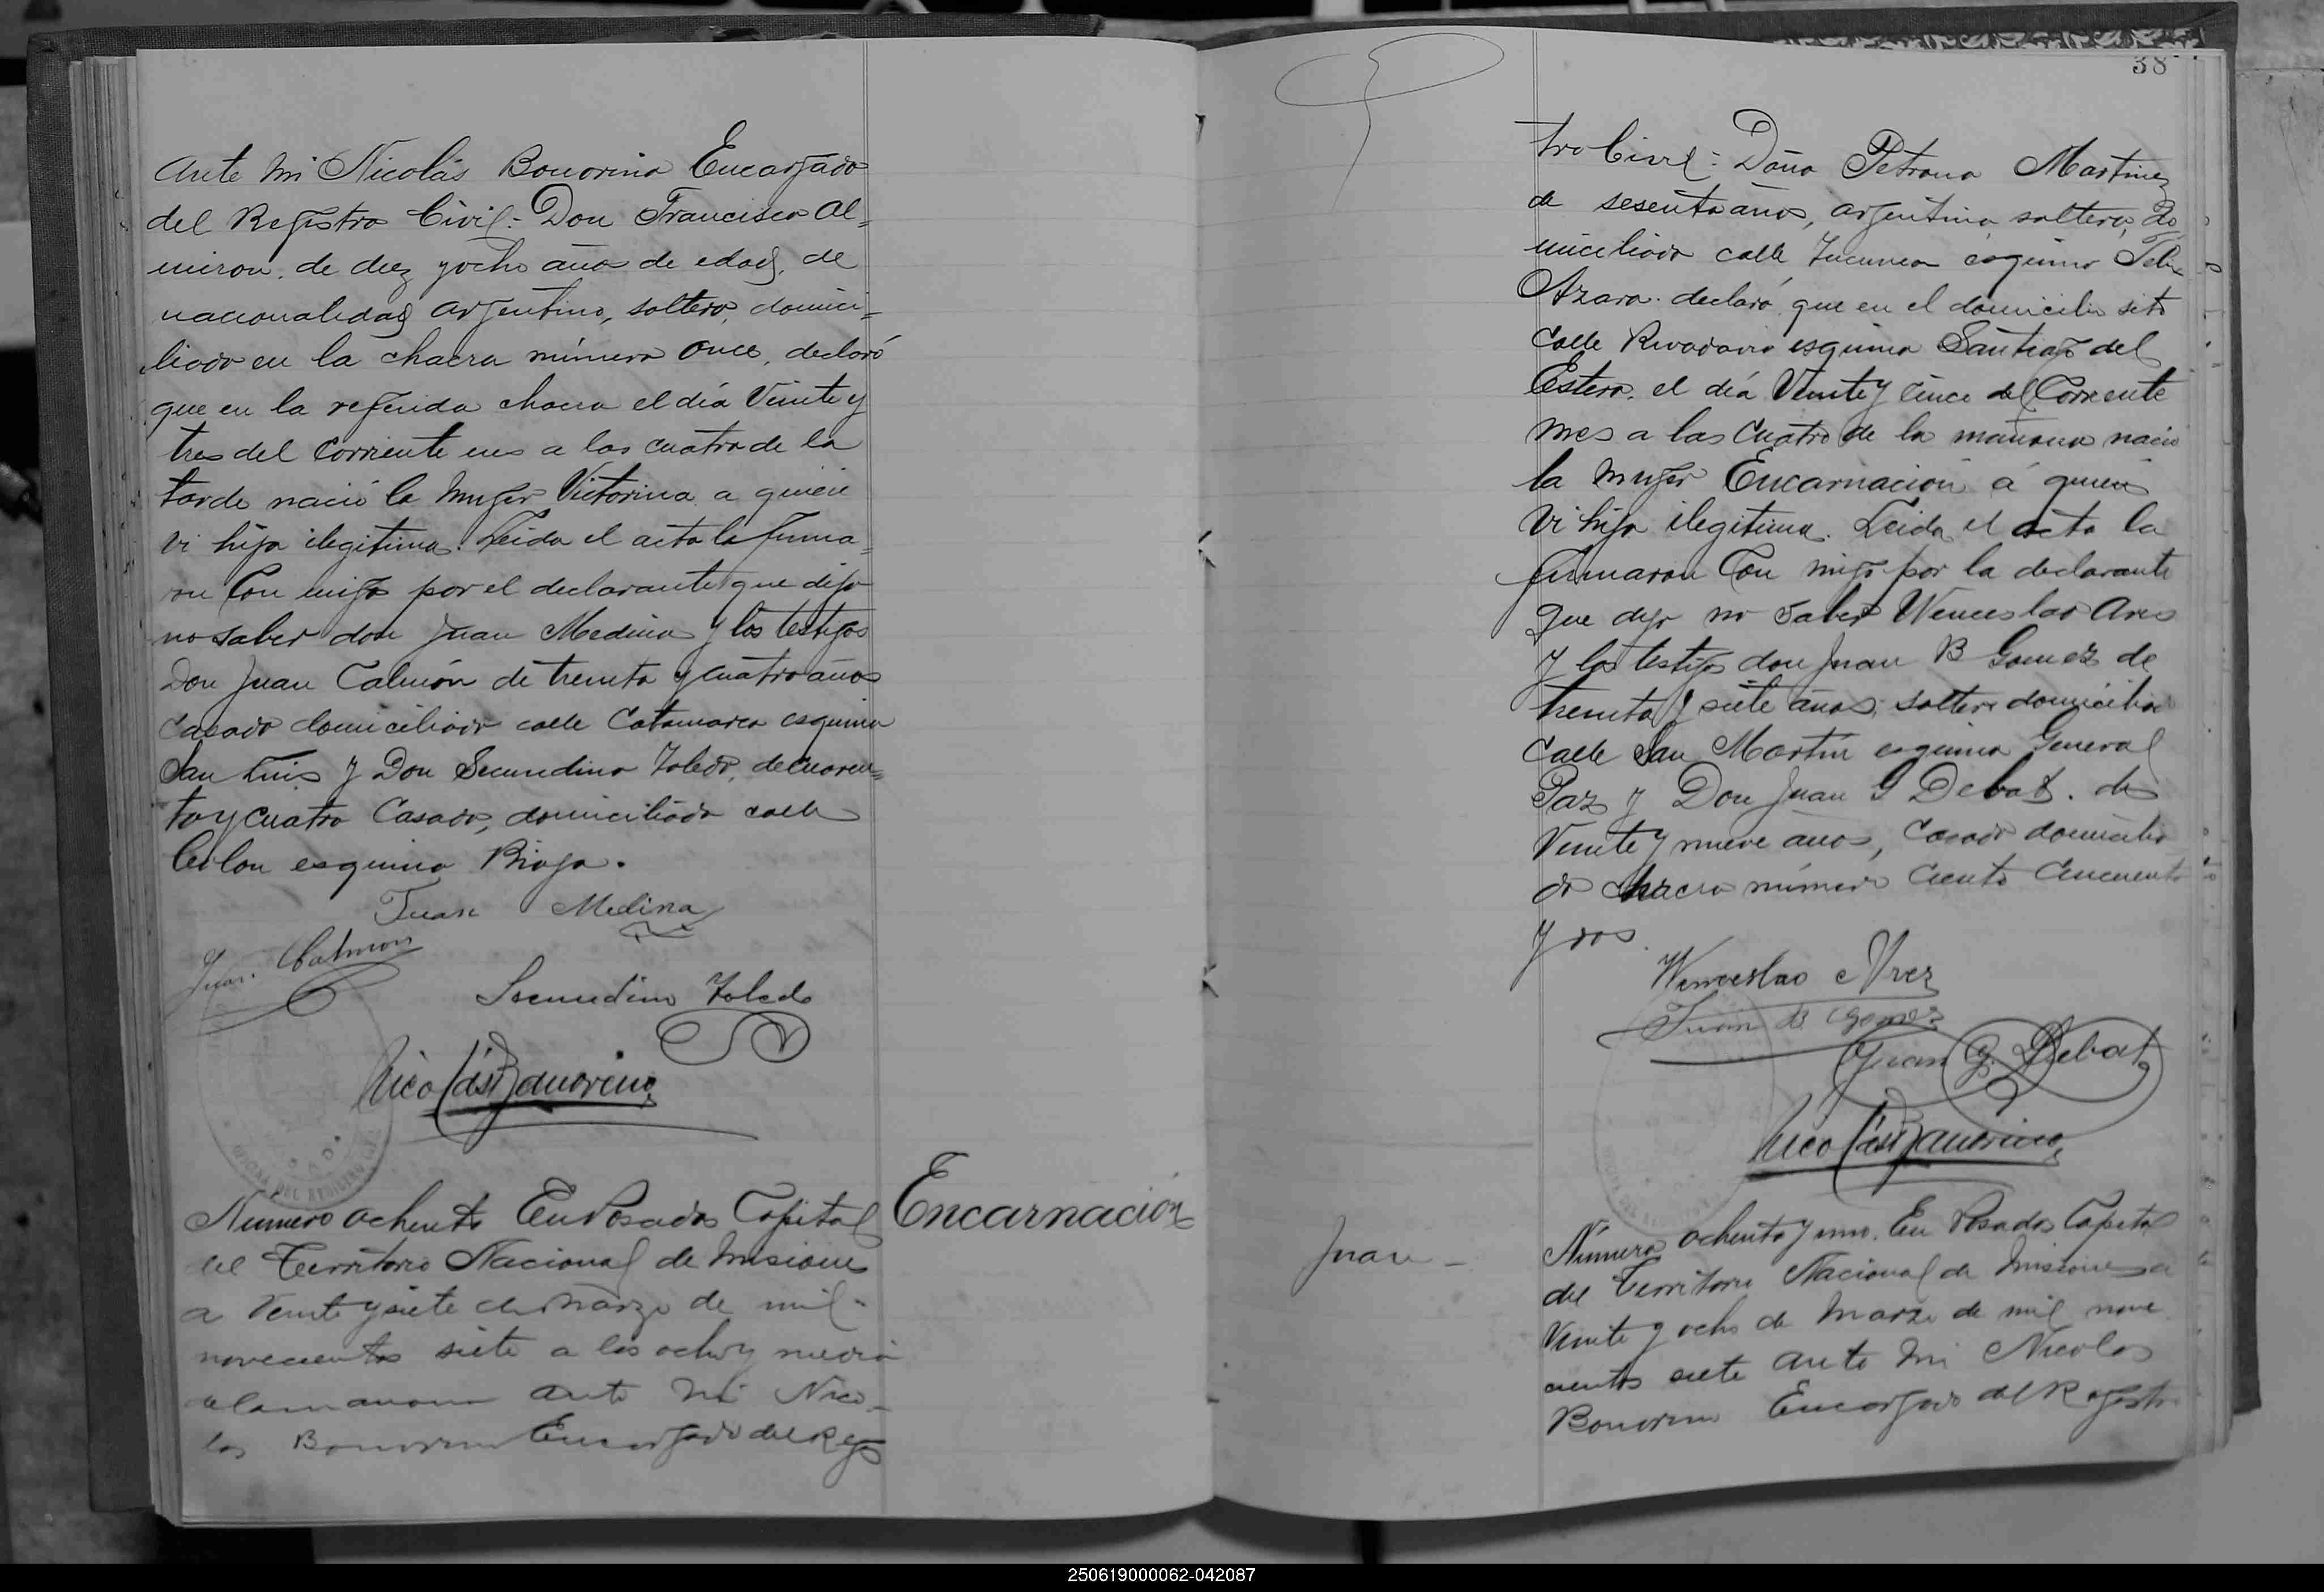 Ante mi Nicolás Bonorino Encargado
del Registro Civil: Don Francisco Al=
miron, de diez y ocho años de edad, de
nacionalidad argentino, soltero, domici=
liado en la chacra número once, declaró
que en la referida chacra el día Veinte y
tres del Corriente mes a las cuatro de la
tarde nació la mujer Victorina a quien
vi hija ilegitima. Leida el acta la firma=
ron Con migo por el declarante que dijo
no saber don Juan Medina y los testigos
Don Juan Calmón de treinta y cuatro años
casado domiciliado calle Catamarca esquina
San Luis y Don Secundino Toledo, de cuaren=
ta y cuatro Casado, domiciliado calle
Colon esquina Rioja.
Juan Medina
Juan Calmon
Secundino Toledo
Nicolás Bonorino
OFICINA DEL REGISTRO
Número ochenta En Posadas Capital
del Territorio Nacional de Misiones
a Veinte y siete de Marzo de mil
novecientos siete a las ocho y media
de la manana ante mi Nico-
las Bonorino Encargado del Regs
Encarnación
38
tro Civil: Doña Petrona Martinez
de sesenta años, argentina soltera, do
miciliada calle Tucuman esquina Felix
Azara declaró que en el domicilio sito
Calle Rivadavia esquina Santiago del
Estero, el día Veinte y cinco del Corriente
mes a las Cuatro de la mañana nació
la mujer Encarnación á quien
Vi hija ilegitima. Leida el acta la
firmaron Con migo por la declarante
que dijo no saber Wenceslao Ares
y los testigos don Juan B Gomez de
treinta y siete años, soltero domicilia
Calle San Martin esquina General
Paz y Don Juan G Debat. de
Veinte y nueve años, Casado domicilia
do chacra número Ciento Cincuenta
y dos.
Wenceslao Arez
Juan B Gomez
Juan G Debat
Nicolás Bonorino
Juan -
Número ochenta y uno. En Posadas Capital
del Territorio Nacional de Misiones a
Veinte y ocho de Marzo de mil nove
cientos siete ante mi Nicolas
Bonorino Encargado del Registro
250619000062-042087